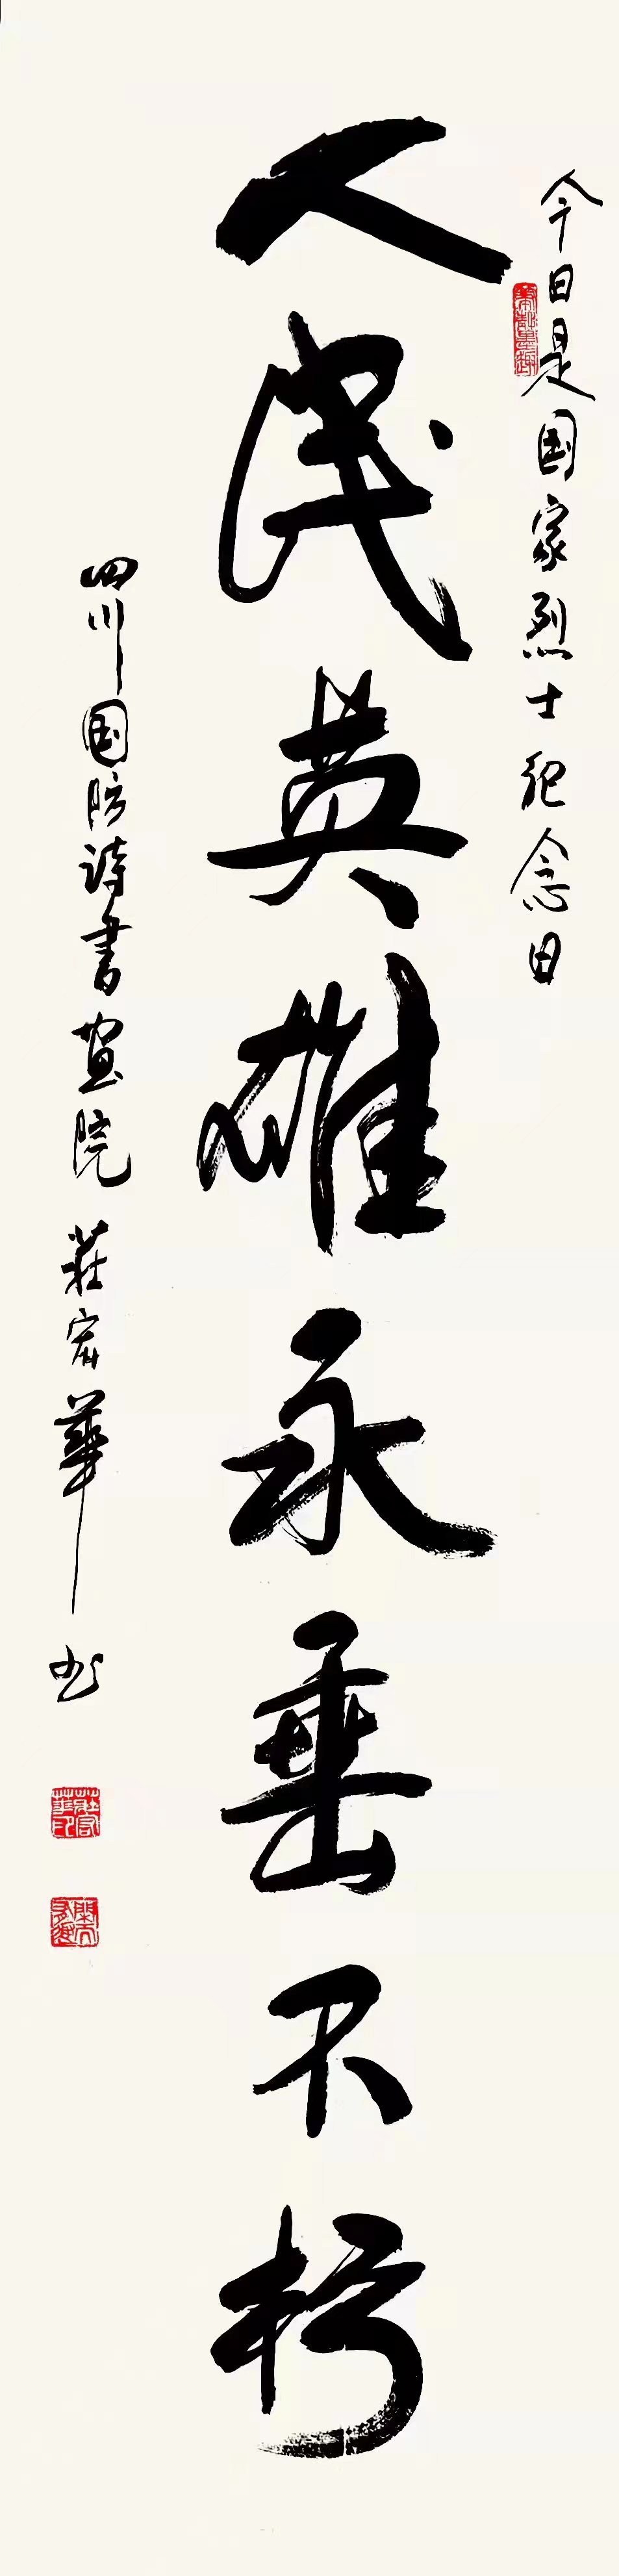 今日是国家烈士纪念日
人民英雄永垂不朽
四川国防诗书画院 莊宏華 书